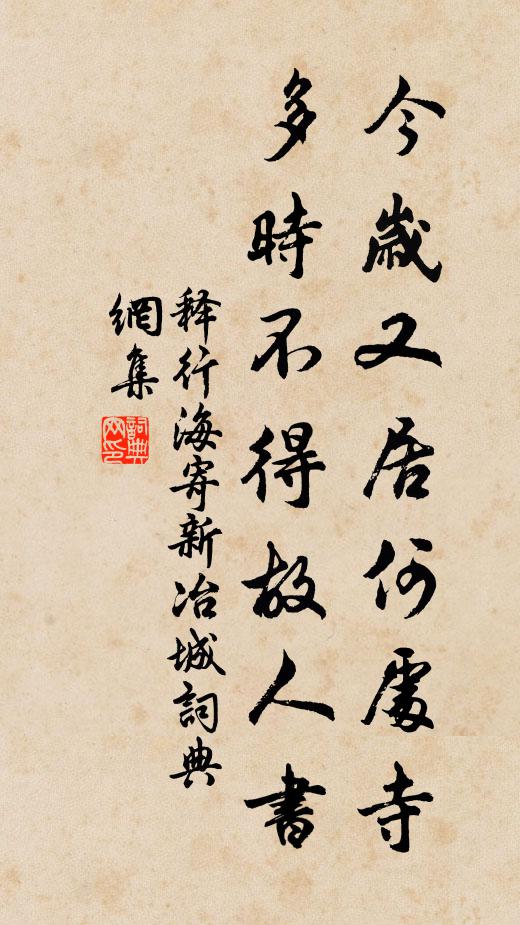 今歲又居何處寺
多時不得故人書
释行海寄新冶城詞典
網集
詞典網印